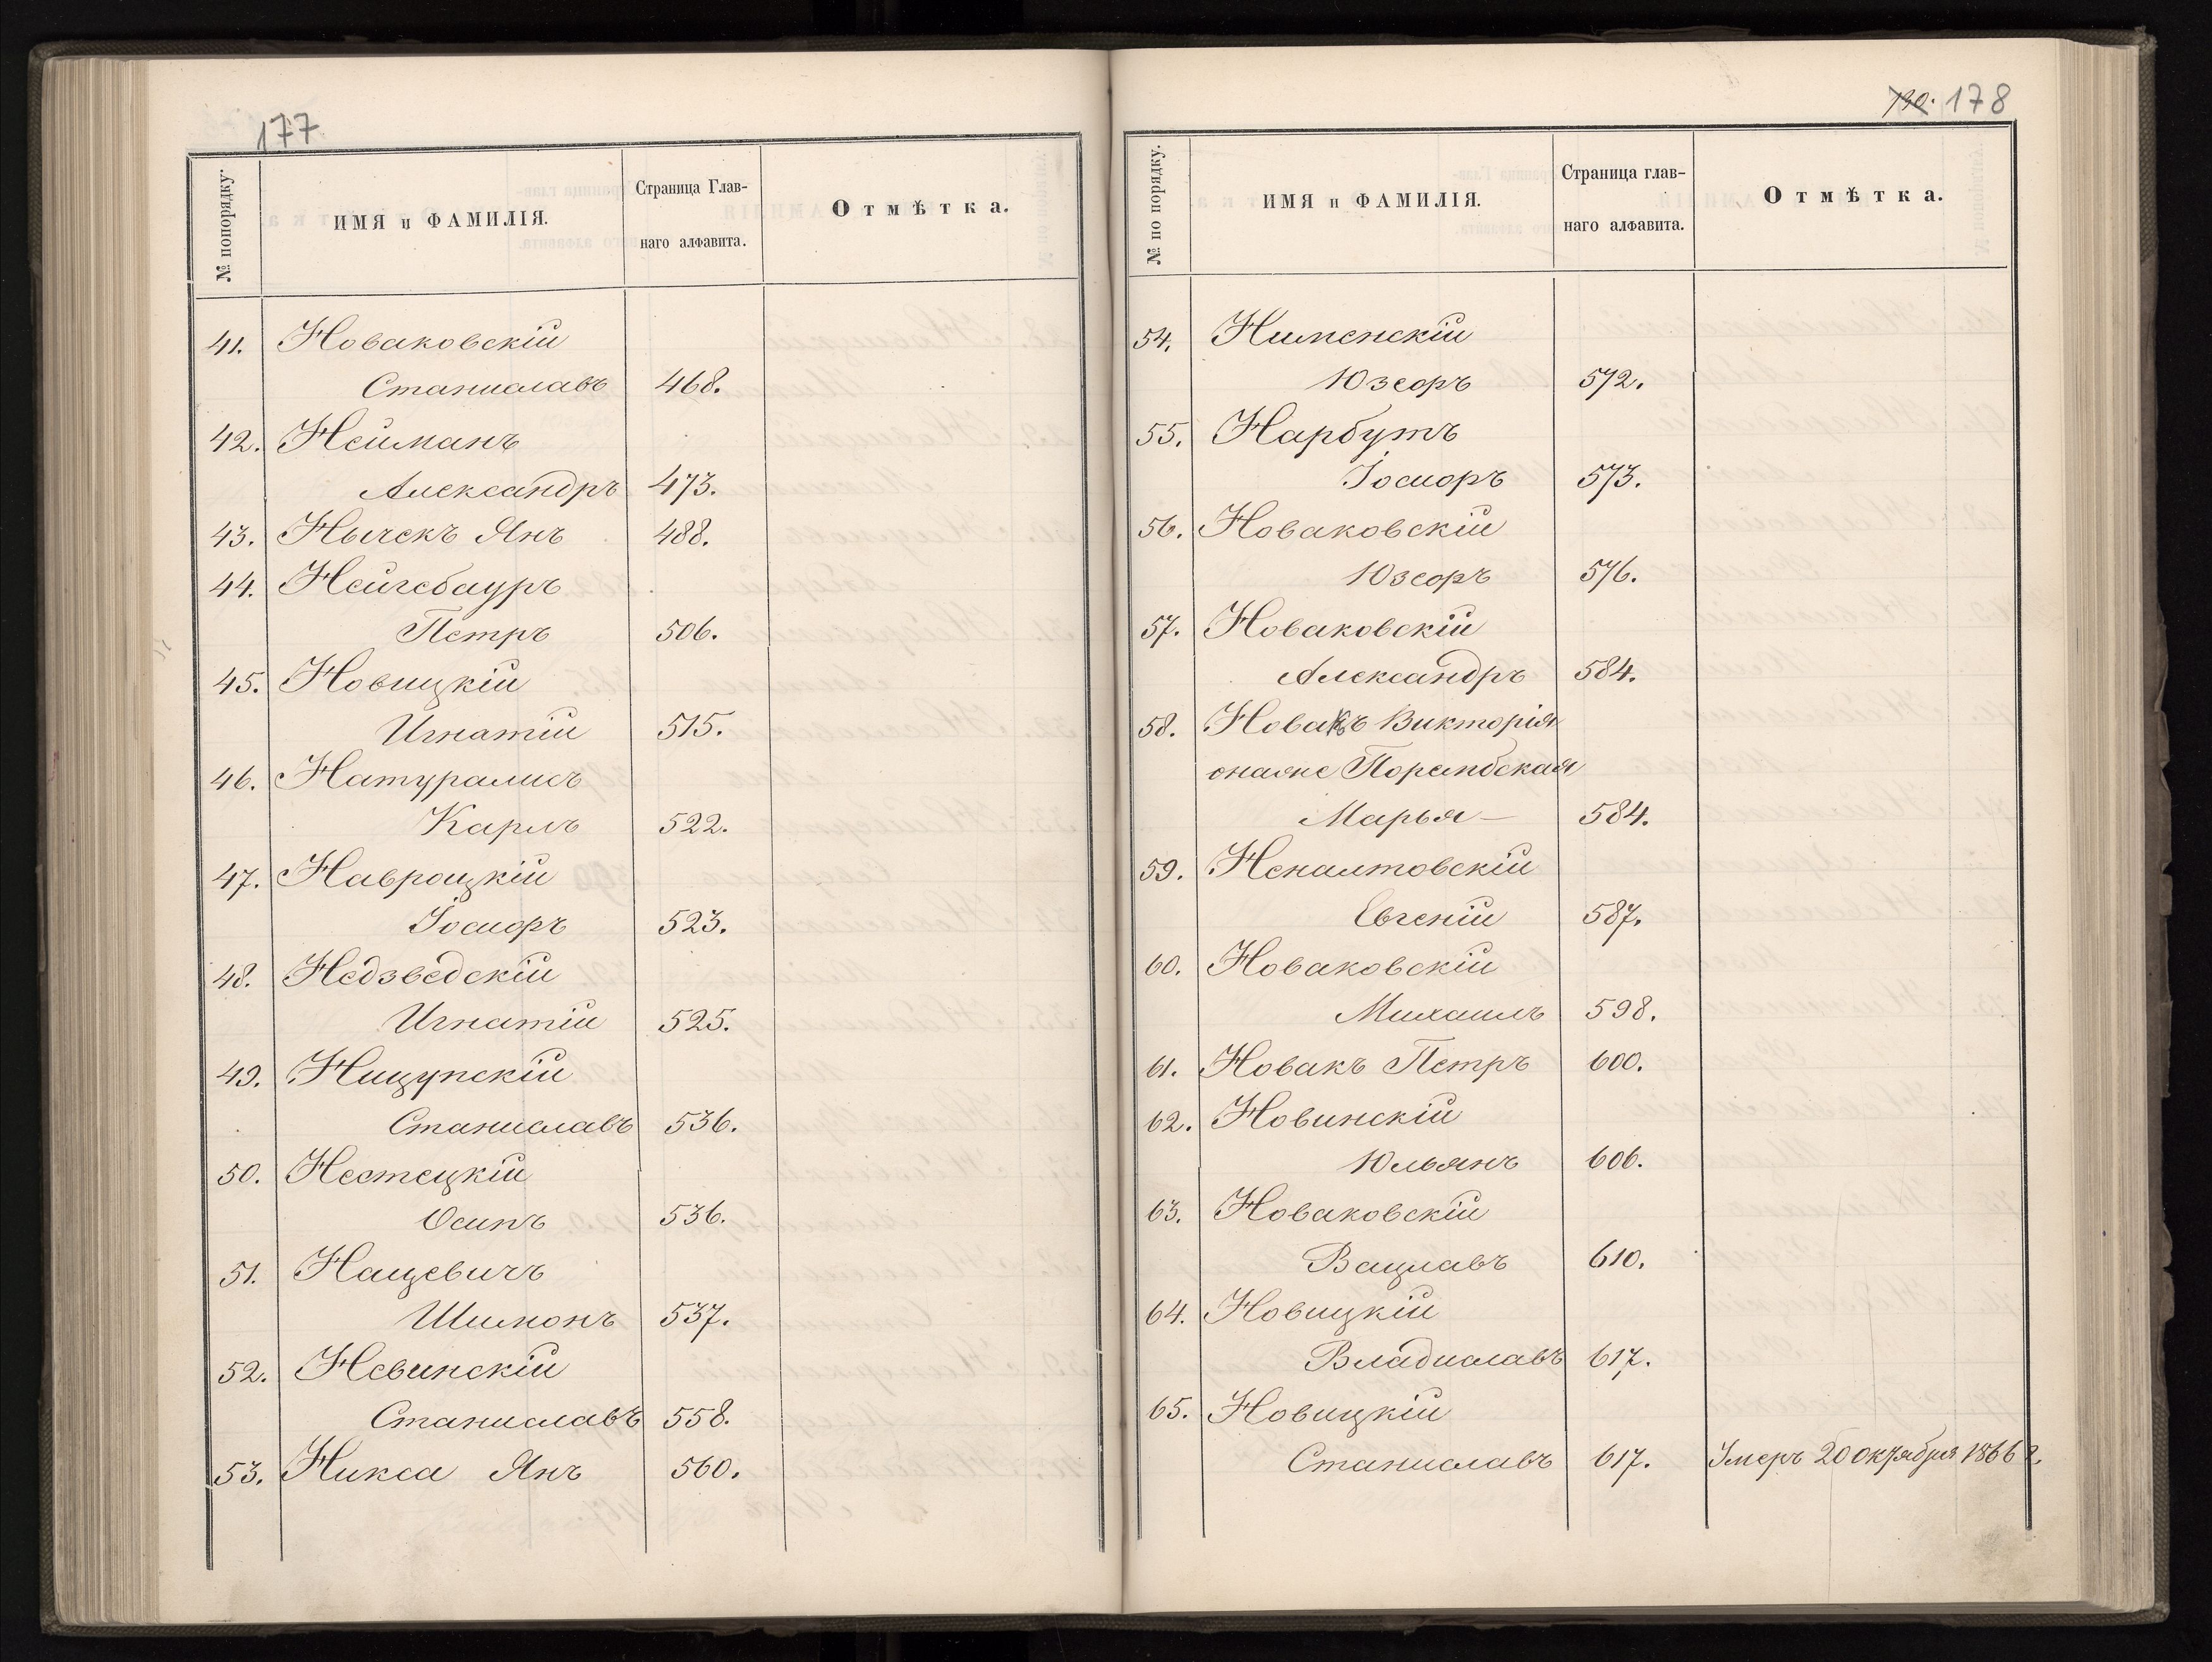 177
№ попорядку.
ИМЯ и ФАМИЛІЯ.
Страница Глав-
наго алфавита.
Отмѣтка.
41. Новаковскій
Станиславъ 468.
42. Нейманъ
Александръ 473.
43. Нычекъ Янъ 488.
44. Нейгебауръ
Петръ 506.
45. Новицкій
Игнатій 515.
46. Натуралисъ
Карлъ 522.
47. Навроцкій
Іосифъ 523.
48. Недзведскій
Игнатій 525.
49. Ницупскій
Станиславъ 536.
50. Нестецкій
Осипъ 536.
51. Нацевичъ
Шимонъ 537.
52. Невинскій
Станиславъ 558.
53. Никса Янъ 560.
190. 178
№ по порядку.
ИМЯ и ФАМИЛІЯ.
Страница глав-
наго алфавита.
Отмѣтка.
54. Нименскій
Юзефъ 572.
55. Нарбутъ
Іосифъ 573.
56. Новаковскій
Юзефъ 576.
57. Новаковскій
Александръ 584.
58. Новакъ Викторія
онаже Порембская
Марья — 584.
59. Неналтовскій
Евгеній 587.
60. Новаковскій
Михаилъ 598.
61. Новакъ Петръ 600.
62. Новинскій
Юльянъ 606.
63. Новаковскій
Вацлавъ 610.
64. Новицкій
Владиславъ 617.
65. Новицкій
Станиславъ 617. Умеръ 20 октября 1866 г.